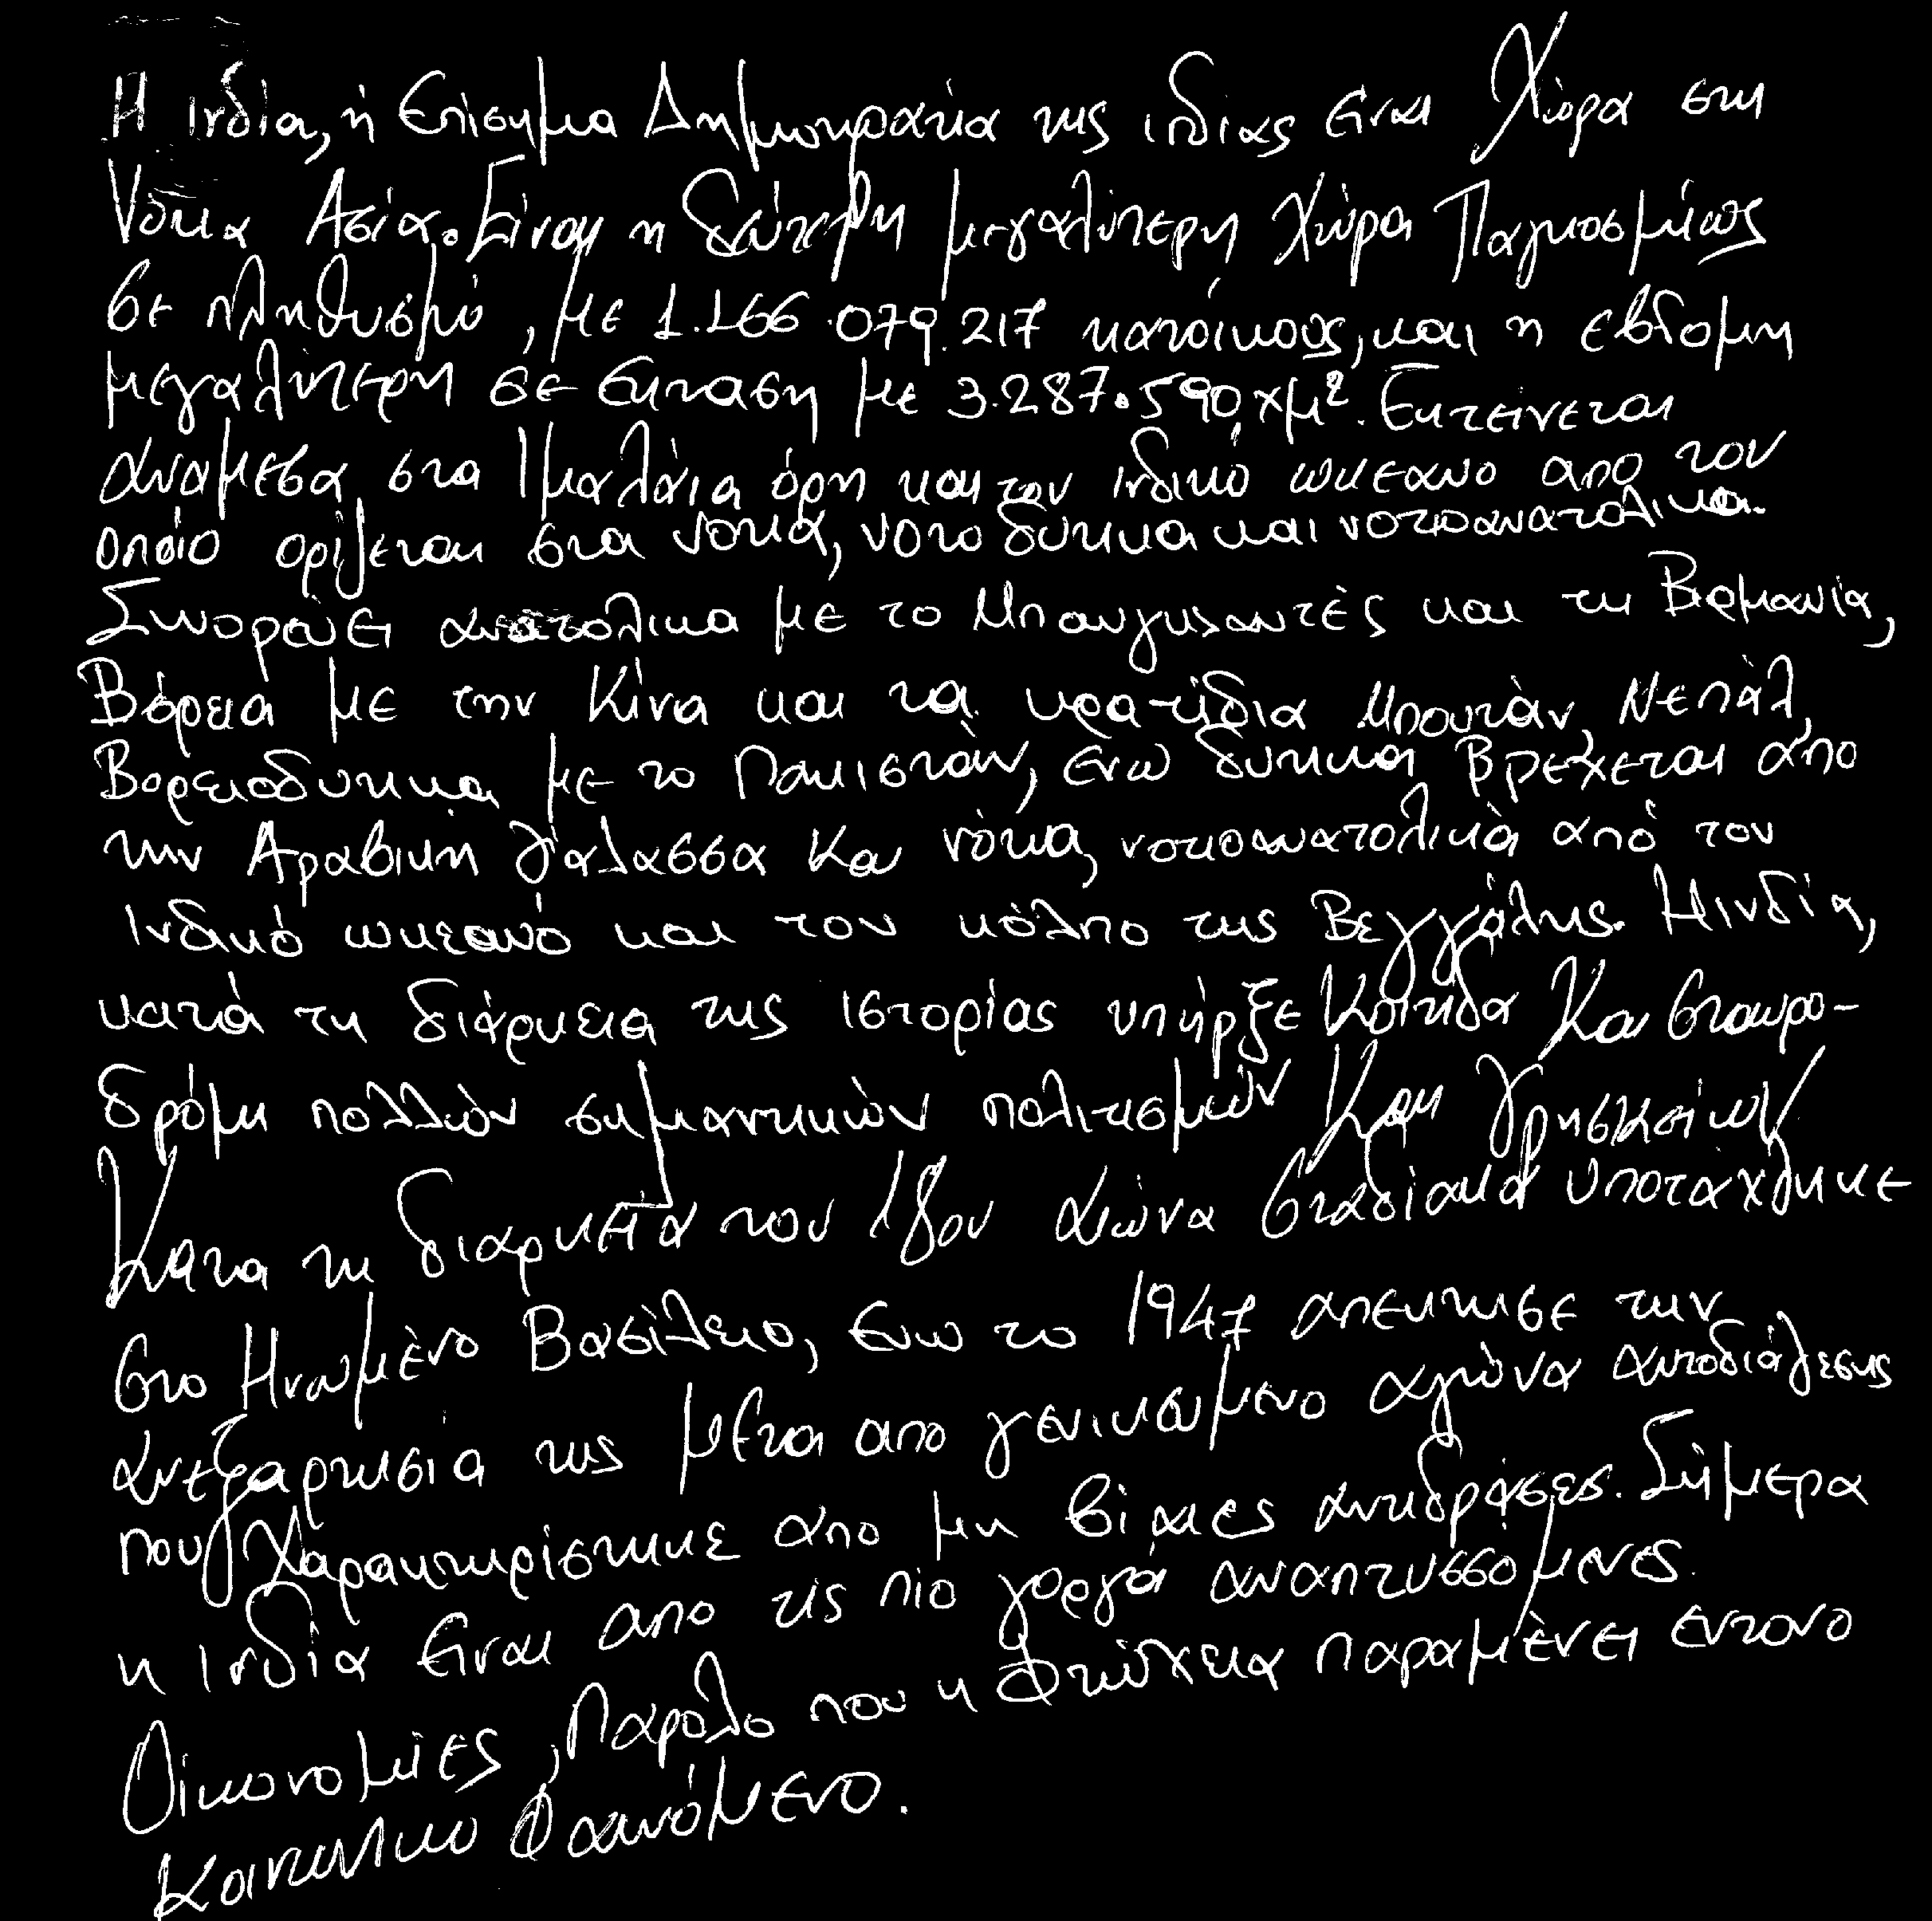 Η ινδία, ή Επίσημα Δημοκρατία της ινδιας είναι Χώρα στη
Νότια Ασία. Είναι η δεύτερη μεγαλύτερη Χώρα Παγκοσμίως
σε πληθυσμό, με 1.166.079.217 κατοίκους, και η εβδομη
μεγαλύτερη σε εκταση με 3.287.590 χμ². Εκτείνεται
αναμεσα στα Ιμαλάια όρη και τον ινδικό ωκεανο απο τον
οποίο ορίζεται στα νοτια, νοτιο δυτικα και νοτιοανατολικα.
Συνορεύει ανατολικα με το Μπαγκλαντές και τη Βιρμανία,
Βόρεια με την Κίνα και τα κρατίδια Μπουτάν, Νεπάλ,
Βορειοδυτικα με το Πακισταν, ενω δυτικα Βρέχεται απο
την Αραβικη θάλασσα και νότια, νοτιοανατολικά από τον
Ινδικό ωκεανό και τον κόλπο της Βεγγάλης. Η ινδία,
κατά τη διάρκεια της ιστορίας υπήρξε Κοιτιδα Και σταυρο-
δρόμι πολλών σημαντικών πολιτισμών Και θρησκειών
Κατα τη διαρκεια του 18ου Αιώνα σταδιακα υποταχθηκε
στο Ηνωμένο Βασίλειο, ενω το 1947 απεκτισε την
Ανεξαρτησία της μετα απο γενικευμενο αγώνα αυτοδιάθεσης
που Χαρακτηρίστηκε απο μη βίαιες αντιδράσεις. Σήμερα
η Ινδία είναι απο τις πιο γοργά αναπτυσσόμενες
Οικονομιές, Παρόλο που η Φτώχεια παραμένει εντονο
Κοινωνικο Φαινόμενο.